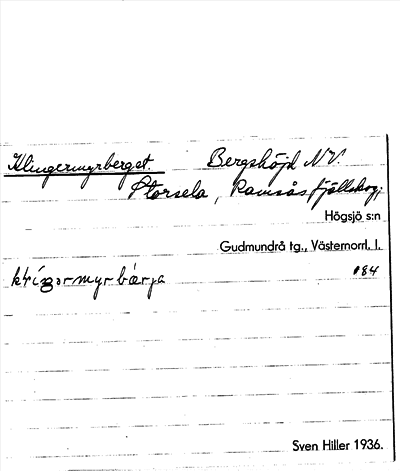 Klingermyrberget. Bergshöjd NV.
Storsela, Ramsås fjällskog;
Högsjö s:n
Gudmundrå tg., Västernorrl. l.
184
Sven Hiller 1936.